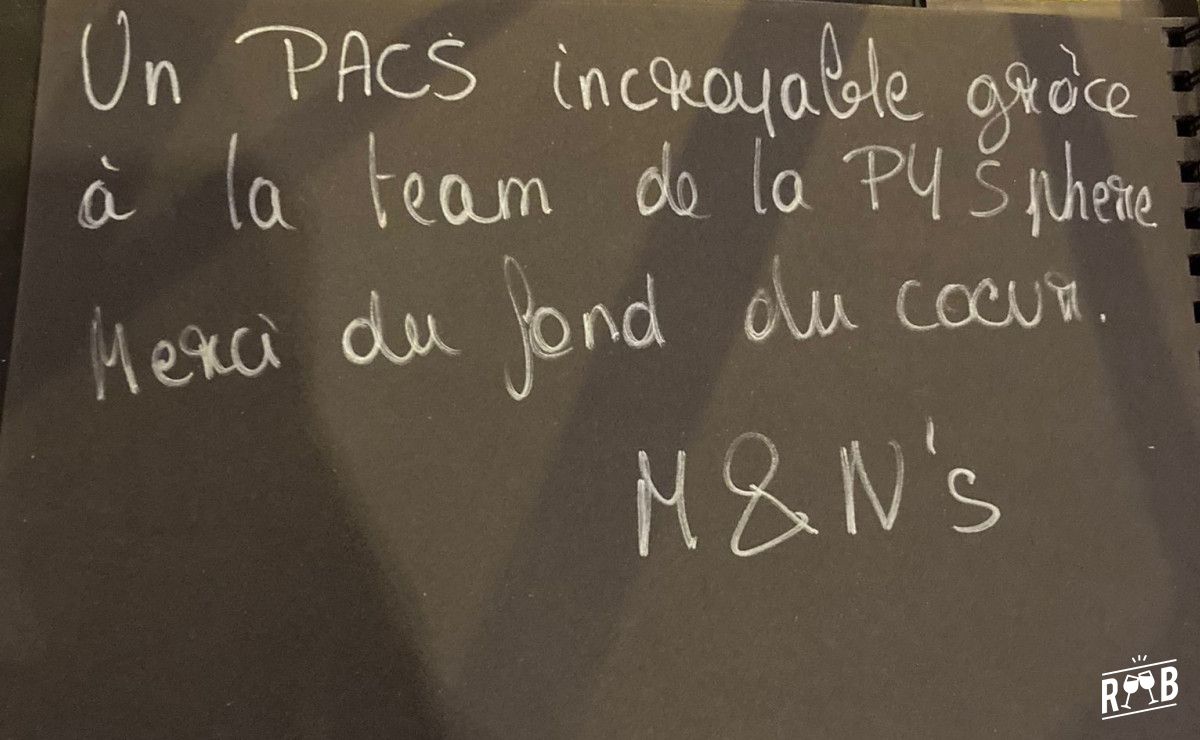 Un PACS incroyable grâce
à la team de la PYSphere
Merci du fond du cœur.
M & N's
R B